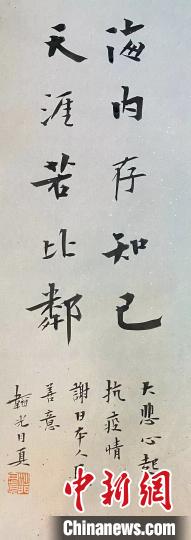 海内存知己
天涯若比鄰
大悲心起
抗疫情
謝日本人
善意
光日真
中新網
CHINANEWS.COM
Chinanews.com